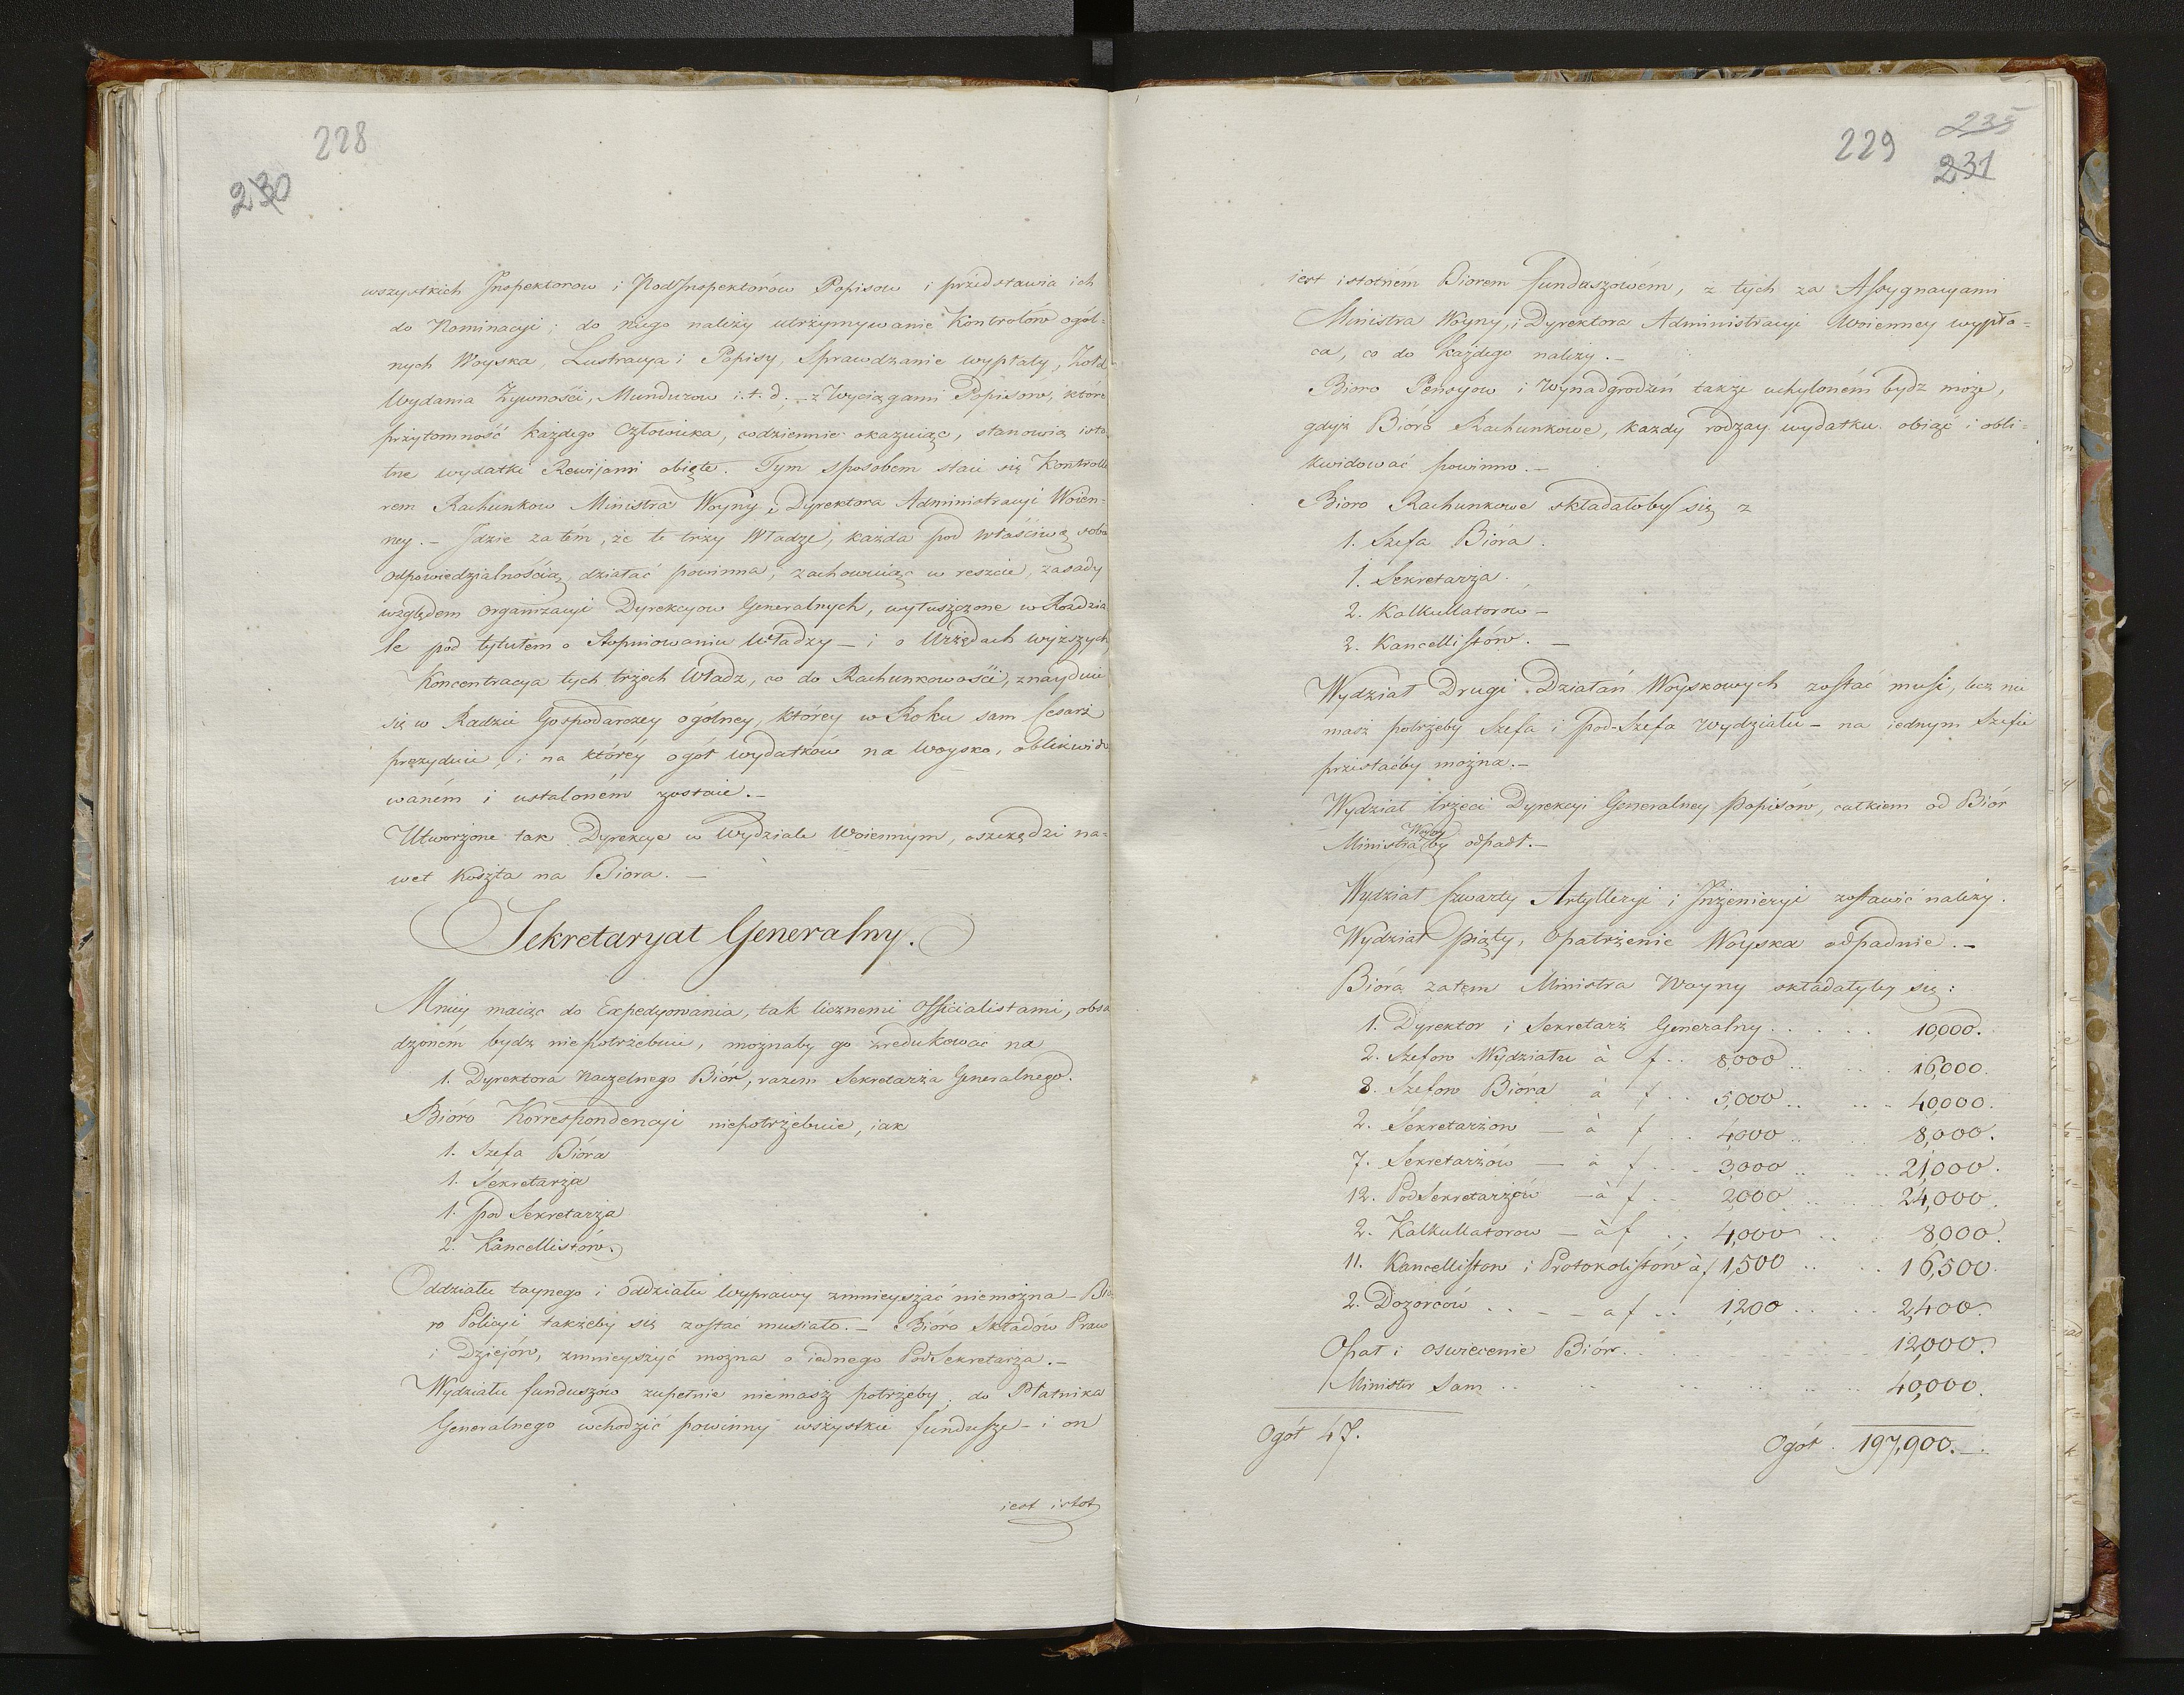 228
230
wszystkich Inspektorow i PodInspektorów Popisow i przedstawia ich
do Nominacyi; do niego należy utrzymywanie Kontrolów ogól-
nych Woyska, Lustracya i Popisy, Sprawdzanie wypłaty, Żołd
Wydania Żywności, Mundurow i.t.d. – z Wyciągami Popisów, które
przytomność każdego Człowieka, codziennie okazuiąc, stanowią isto
tne wydatki Rewijami obięte. Tym sposobem staie się Kontrolle
rem Rachunkow Ministra Woyny, i Dyrektora Administracyi Woien-
ney. – Idzie zatém, że te trzy Władze, każda pod właściwą sobie
odpowiedzialnością działać powinna, zachowuiąc w reszcie, zasady
względem organizacyi Dyrekcyow Generalnych, wyłuszczone w Rozdzia
le pod tytułem o Stopniowaniu Władzy – i o Urzędach wyższych
Koncentracya tych trzech Władz, co do Rachunkowości, znayduie
się w Radzie Gospodarczey ogólney, którey w Roku sam Cesarz
prezyduie, i na którey ogół wydatków na Woysko, oblikwido
waném i ustaloném zostaie. –
Utworzone tak Dyrekcye w Wydziale Woiennym, oszczędzi na-
wet Koszta na Biora. –
Sekretaryat Generalny.
Mniey maiąc do Expedyowania, tak licznemi Officialistami, obsa
dzoném bydz niepotrzebuie, moznaby go zredukować na
1. Dyrektora Naczelnego Biór, razem Sekretarza Generalnego.
Bióro Korrespondencyi niepotrzebuie, iak
1. Szefa Bióra
1. Sekretarza
1. pod Sekretarza
2. Kancellistów.
Oddziału taynego i Oddziału Wyprawy zmnieyszać niemożna – Bió
ro Policyi takżeby się zostać musiało. – Bióro Składów Praw
i Dziejów, zmnieyszyć można o iednego PodSekretarza. –
Wydziału funduszów zupełnie niemasz potrzeby, do Płatnika
Generalnego wchodzić powinny wszystkie fundusze – i on
iest istot
229
235
231
iest istotném Biorem funduszowém, z tych za Assygnacyami
Ministra Woyny, i Dyrektora Administracyi Woienney wypła-
ca, co do każdego należy. –
Biuro Pensyow i Wynadgrodzeń także uchyloném bydz może,
gdyż Bióro Rachunkowe, kazdy rodzay wydatku obiąć i obli-
kwidować powinno. –
Bioro Rachunkowe składałoby się z
1. Szefa Bióra.
1. Sekretarza.
2. Kalkullatorow –
2. Kancellistów. –
Wydział Drugi Działań Woyskowych zostać musi, lecz nie
masz potrzeby Szefa i pod-Szefa Wydziału – na iednym Szefie
przestaćby można. –
Wydział trzeci Dyrekcyi Generalney Popisów, całkiem od Biór
Woyny
Ministra by odpadł. –
Wydział Czwarty Artylleryi i Inżenieryi zostawić należy.
Wydział piąty, Opatrzenie Woyska odpadnie. –
Bióra zatem Ministra Woyny składałyby się:
1. Dyrektor i Sekretarz Generalny . . . . . 10,000.
2. Szefow Wydziału à f . . 8,000 . . . . . 16,000.
8. Szefow Bióra à f . . 5,000 . . . . . 40,000.
2. Sekretarzów – à f . . 4,000 . . . . 8,000.
7. Sekretarzów – à f . . . 3,000 . . . . . 21,000.
12. PodSekretarzów – à f . . 2,000 . . . . 24,000.
2. Kalkullatorow – à f . . 4,000 . . . 8,000.
11. Kancellistow i Protokolistów à f 1,500 . . . . 16,500.
2. Dozorców . . – – a f . . 1,200 . . . . . 2,400.
Opał i oswiecenie Biór . . . . 12,000.
Minister Sam . . . . . . . . 40,000.
Ogół 47.
Ogół . 197,900. –.